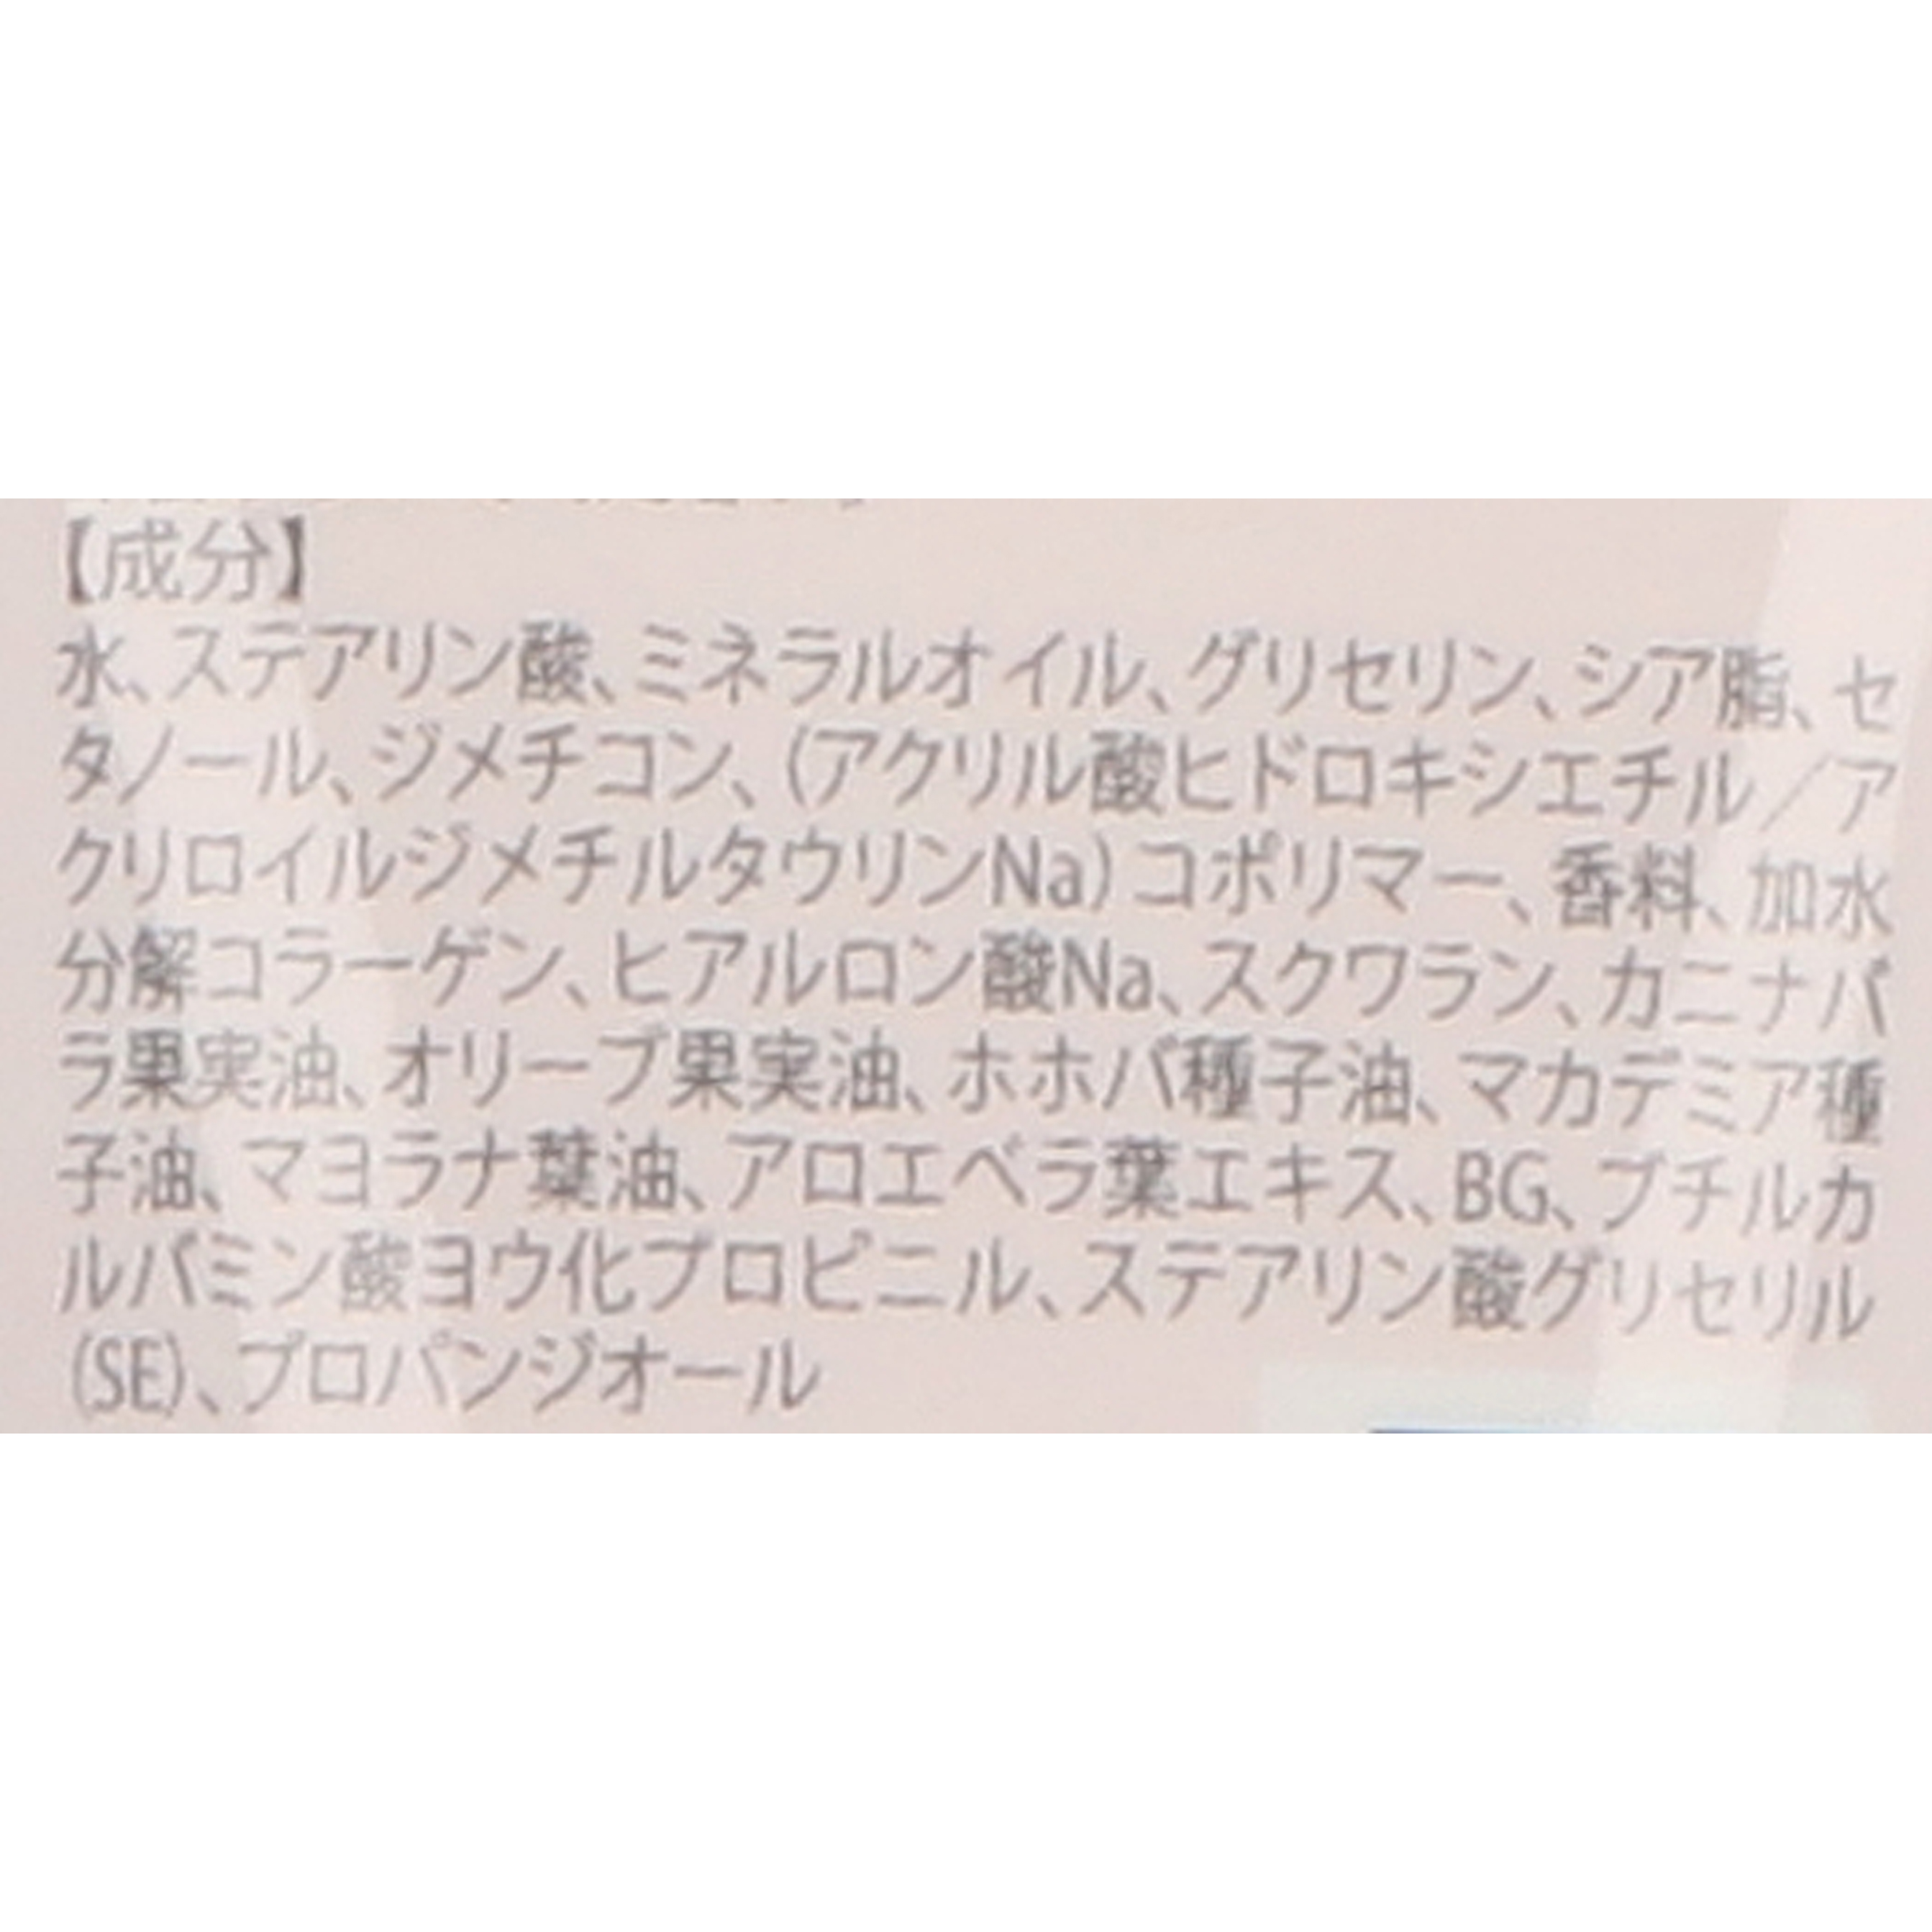 【成分】
水、ステアリン酸、ミネラルオイル、グリセリン、シア脂、セ
タノール、ジメチコン、(アクリル酸ヒドロキシエチル／ア
クリロイルジメチルタウリンNa)コポリマー、香料、加水
分解コラーゲン、ヒアルロン酸Na、スクワラン、カニナバ
ラ果実油、オリーブ果実油、ホホバ種子油、マカデミア種
子油、マヨラナ葉油、アロエベラ葉エキス、BG、ブチルカ
ルバミン酸ヨウ化プロピニル、ステアリン酸グリセリル
(SE)、プロパンジオール